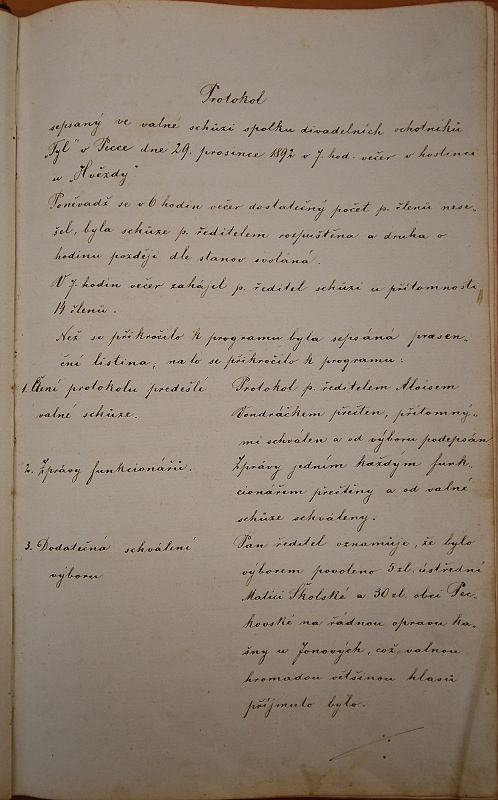 Protokol
sepsaný ve valné schůzi spolku divadelních ochotníků
„Tyl" v Pecce dne 29. prosince 1892 v 7. hod. večer v hostinci
u „Hvězdy"
Poněvadž se v 6 hodin večer dostatečný počet p. členů nese-
šel, byla schůze p. ředitelem rozpuštěna a druhá o
hodinu později dle stanov svolána.
V 7. hodin večer zahájel p. ředitel schůzi u přítomnosti
14 členů.
Než se přikročilo k programu byla sepsána prasen-
ční listina, na to se přikročilo k programu:
1. Čtení protokolu predešlé
valné schůze.
Protokol p. ředitelem Aloisem
Vondráčkem přečten, přítomný-
mi schválen a od výboru podepsán
2. Zprávy funkcionářů.
Zprávy jedním každým funk-
cionářem přečtiny a od valné
schůze schváleny.
3. Dodatečná schválení
výboru
Pan ředitel oznamuje, že bylo
výborem povoleno 5 zl. ústřední
Matici Školské a 30 zl. obci Pec-
kovské na řádnou opravu ka-
šny u Jonových, což valnou
hromadou většinou hlasů
příjmuto bylo.